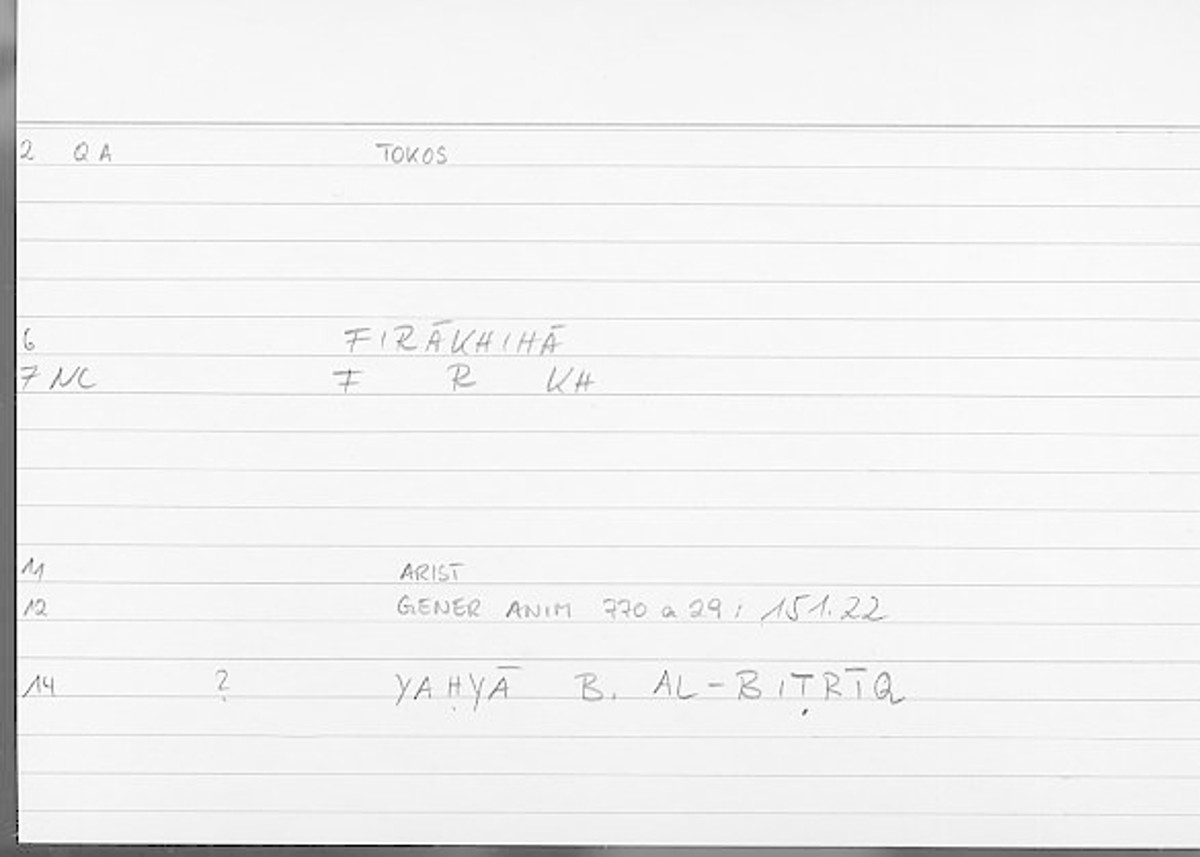 2 QA TOKOS
6 FIRĀKHIHĀ
7 NC F R KH
11 ARIST
12 GENER ANIM 770 a 29; 151.22
14 ? YAḤYĀ B. AL-BIṬRĪQ